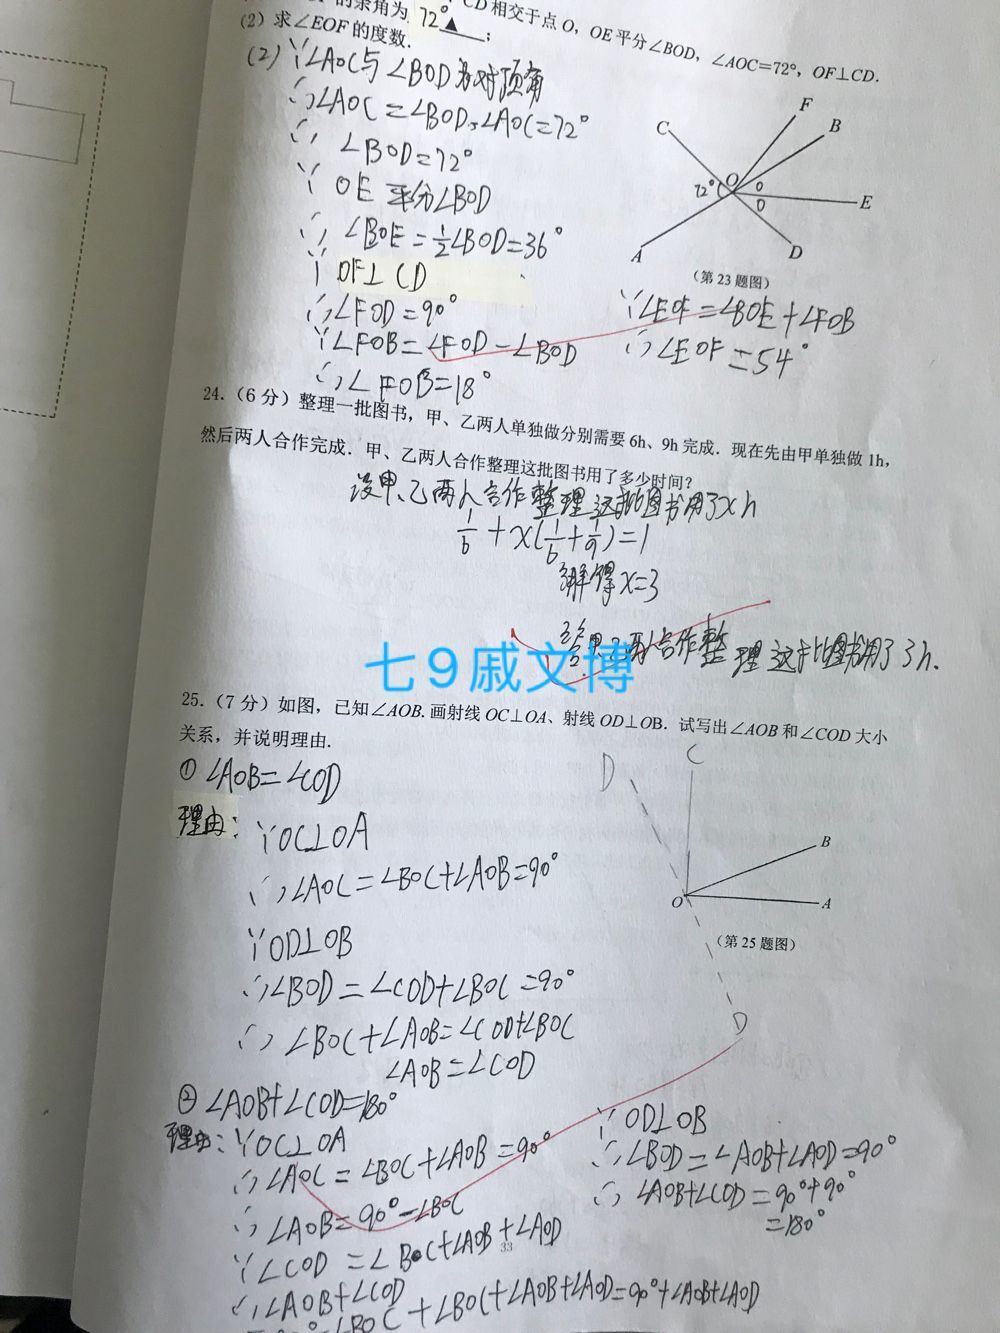 的余角为 72° ▲ ；
CD相交于点O，OE平分∠BOD，∠AOC=72°，OF⊥CD.
(2) 求∠EOF的度数.
(2) ∵∠AOC与∠BOD为对顶角
∴∠AOC=∠BOD,∠AOC=72°
∴ ∠BOD=72°
∵ OE平分∠BOD
∴ ∠BOE=1/2∠BOD=36°
∵ OF⊥CD
∴∠FOD=90°
∵∠FOB=∠FOD-∠BOD
∴∠FOB=18°
F
C
B
72°
O
E
A
D
(第23题图)
∵∠EOF=∠BOE+∠FOB
∴∠EOF=54°
24.(6分)整理一批图书，甲、乙两人单独做分别需要6h、9h完成．现在先由甲单独做1h，
然后两人合作完成．甲、乙两人合作整理这批图书用了多少时间？
设甲、乙两人合作整理这批图书用了xh
1/6+x(1/6+1/9)=1
解得x=3
答:甲乙两人合作整理这批图书用了3h.
七9戚文博
25.(7分)如图，已知∠AOB.画射线OC⊥OA、射线OD⊥OB．试写出∠AOB和∠COD大小
关系，并说明理由.
① ∠AOB=∠COD
理由:
∵OC⊥OA
∴∠AOC=∠BOC+∠AOB=90°
∵OD⊥OB
∴∠BOD=∠COD+∠BOC=90°
∴∠BOC+∠AOB=∠COD+∠BOC
∠AOB=∠COD
D
C
B
O
A
(第25题图)
D
② ∠AOB+∠COD=180°
理由:∵OC⊥OA
∴∠AOC=∠BOC+∠AOB=90°
∴∠AOB=90°-∠BOC
∵∠COD=∠BOC+∠AOB+∠AOD
∴∠AOB+∠COD
-∠BOC+∠BOC+∠AOB+∠AOD=90°+∠AOB+∠AOD
∵OD⊥OB
∴∠BOD=∠AOB+∠AOD=90°
∴∠AOB+∠COD=90°+90°
=180°
33